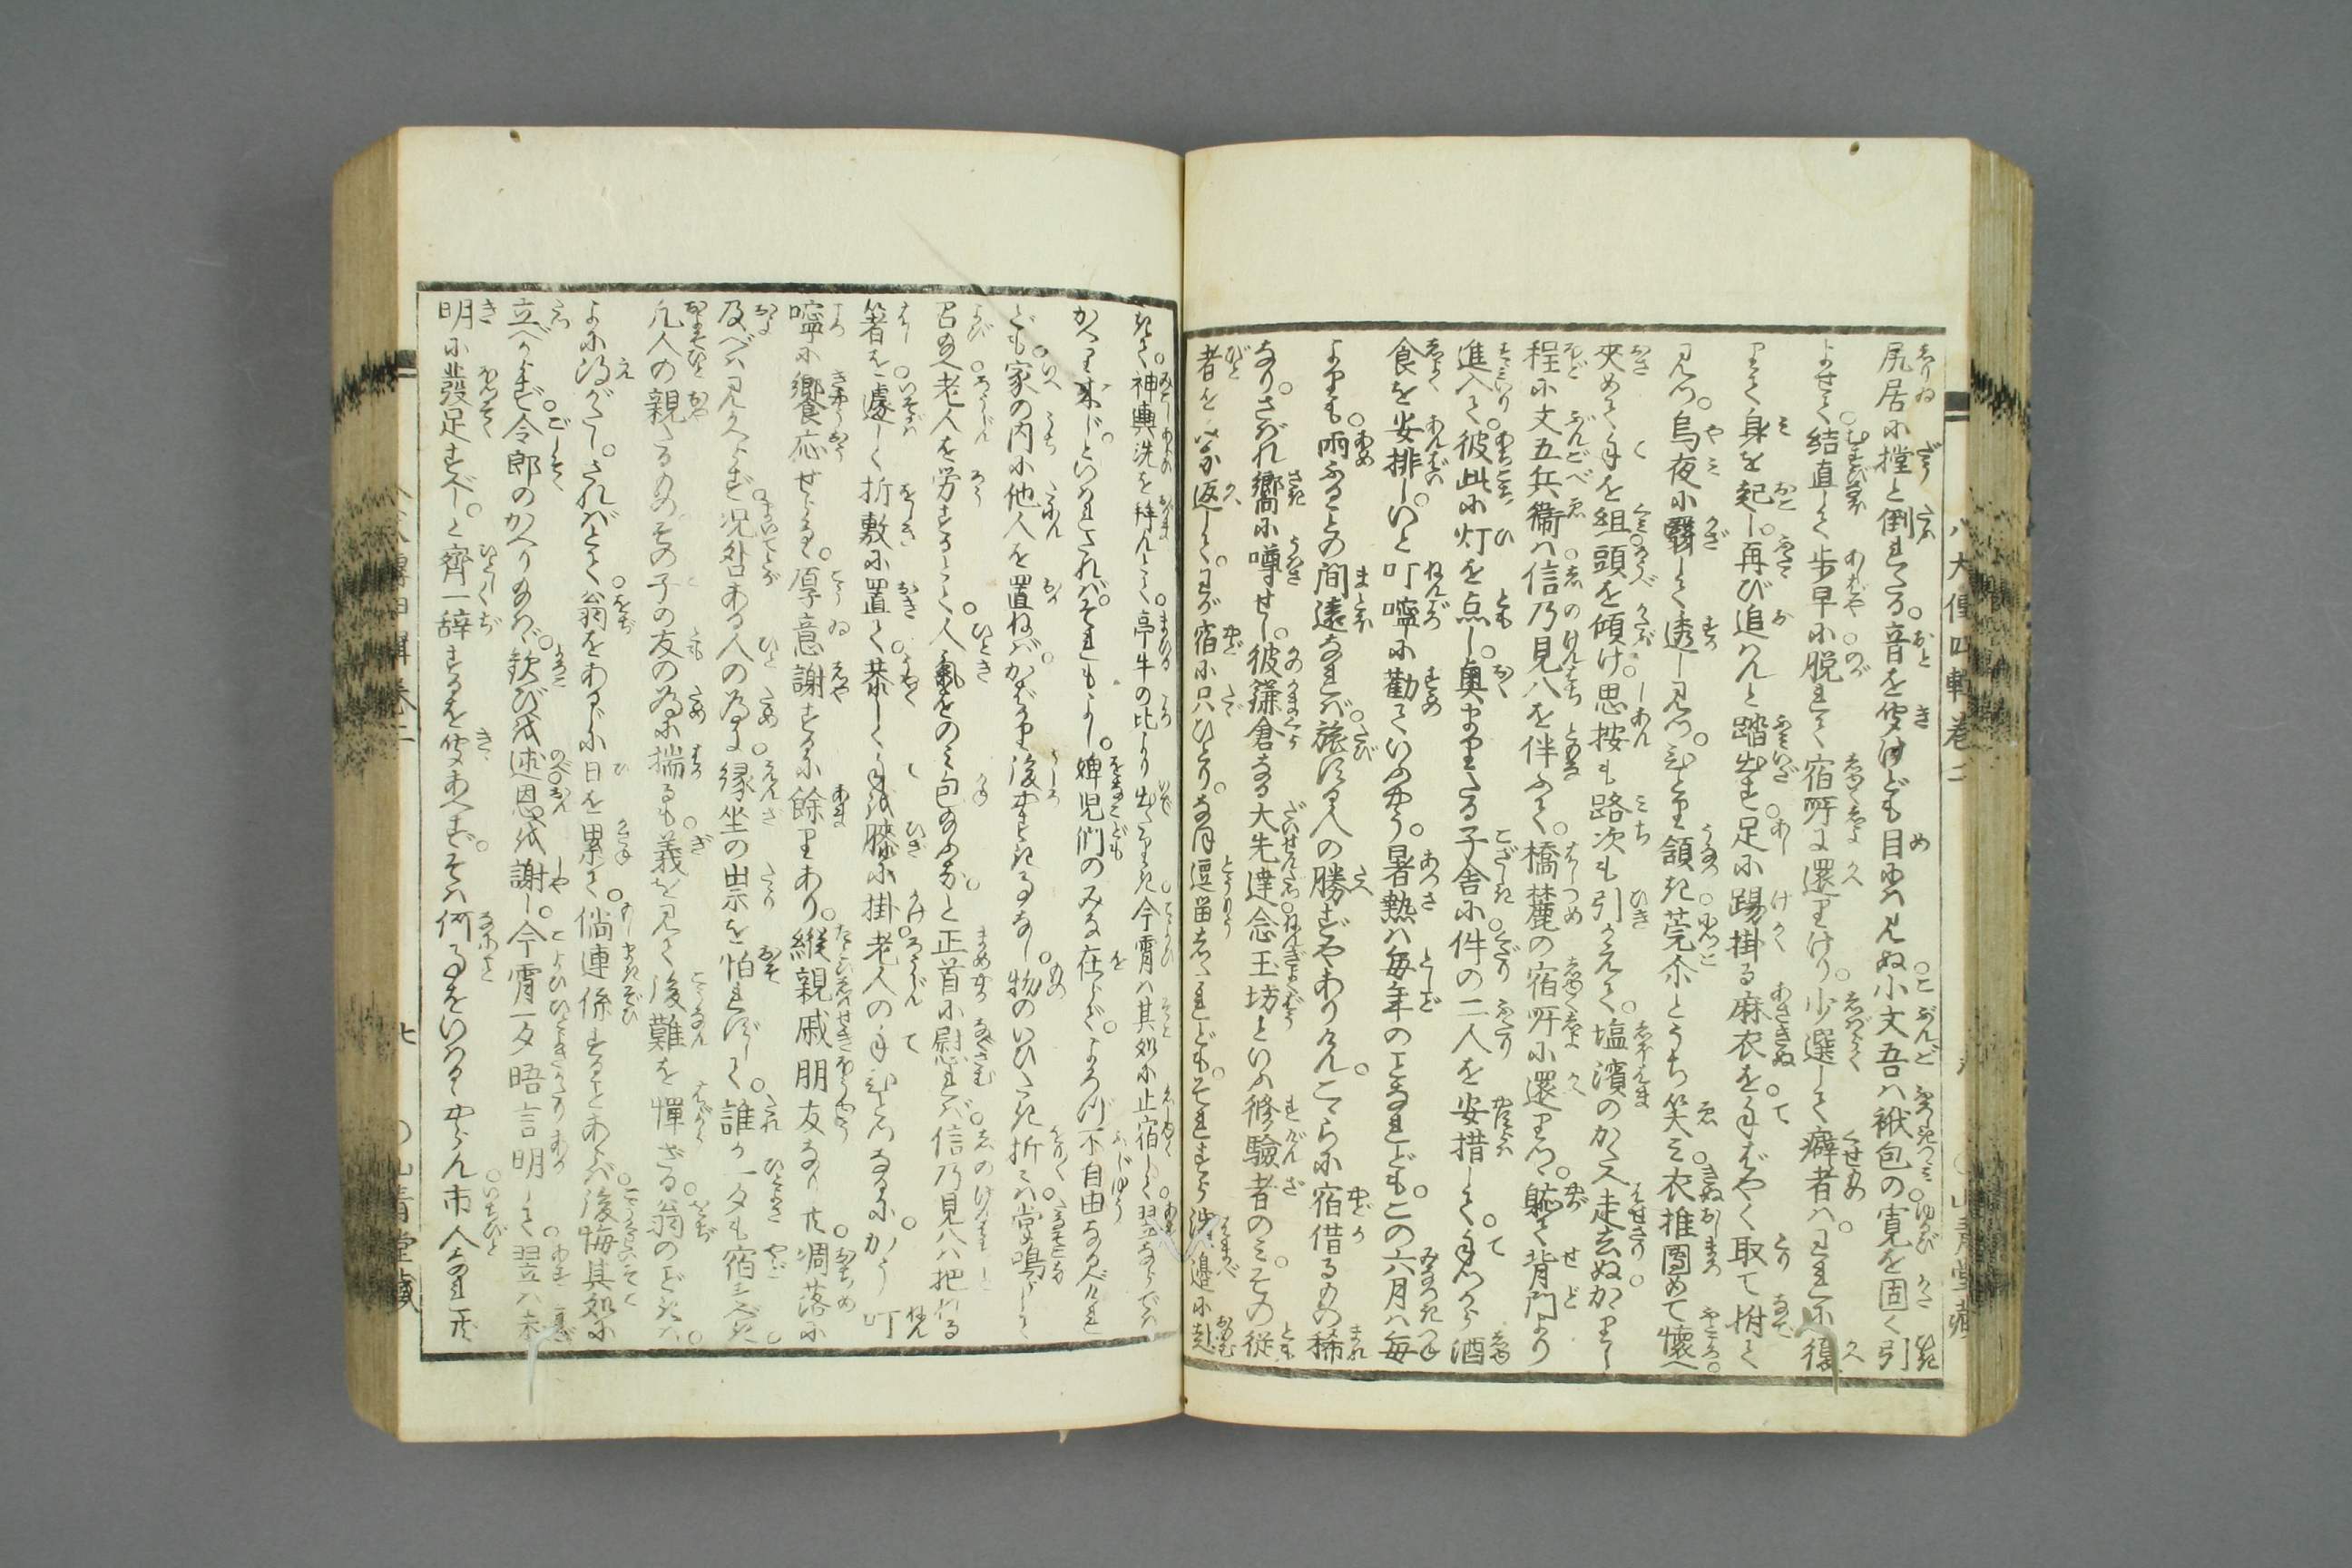 八犬傳四輯巻二
六
〇山青堂藏
尻居に撞と倒れたる。音を聞けども目には見ぬ小文吾は袱包の寛を固く引
よせて結直して歩早に脱れて宿所に還りけり。少選して癖者は。われに復
りて身を起し。再び追んと踏出す足に踢掛る麻衣を。手ばやく取て拊て
見つ。烏夜に翳して透し見つ。ひとり頷き莞尓とうち笑み衣推圓めて懐へ
夾めて手を組頭を傾け。思按も路次も引かえて。塩濱のかたへ走去ぬかゝりし
程に文五兵衞は信乃見八を伴ふて。橋麓の宿所に還りつ。躱て背門より
進入て。彼此に灯を点し。奥まりたる子舎に件の二人を安措して。手づから酒
食を安排し。いと叮嚀に勸ていふやう。暑熱は毎年のことなれども。この六月は毎
よりも。雨ふることの間遠なれば。旅ゆく人の勝ずやありけん。こゝらに宿借るもの稀
なり。さばれ嚮に噂せし。彼鎌倉なる大先達念玉坊といふ修驗者のみ。その従
者をば皆返して。わが宿に只ひとり。なほ逗留したれども。それすら浜邊に赴
きて。神輿洗を拝んとて。亭午の比より出たりき。今宵は其処に止宿して。翌ならでは
かへり来じ。といはれたれば。それもよし。婢児們のみな在らず。よろづ不自由なるべけれ
ども。家の内に他人を置ねば。かばかり後やすきはなし。物のいひたき折々は掌を鳴して
召給へ。老人を労するとて。人氣をのみ包給ふな。と正首に慰れば。信乃見八は把たる
箸を。遽しく折敷に置て。恭しく手を膝に掛。老人の手ひとつなるに。かう叮
嚀に饗応せらるゝ。厚意謝するに餘りあり。縦親戚朋友なりとも。凋落に
及べば見かへらず。况咎ある人の為に。縁坐の祟を怕れずして。誰か一夕も宿すべき。
凡人の親たるもの。その子の友の為に揣るも。義を見て後難を憚ざる。翁のごときは
よに得がたし。さればとて翁をあるじに日を累て。倘連係することあらば。後悔其処に
立べからず。令郎のかへり給はゞ。歓びを述恩を謝し。今宵一夕晤言明して。翌は未
明に發足すべし。と齊一辞するを聞あへず。そは何事をいはるゝやらん。市人なれども
八犬傳四輯巻二
七
〇山青堂藏